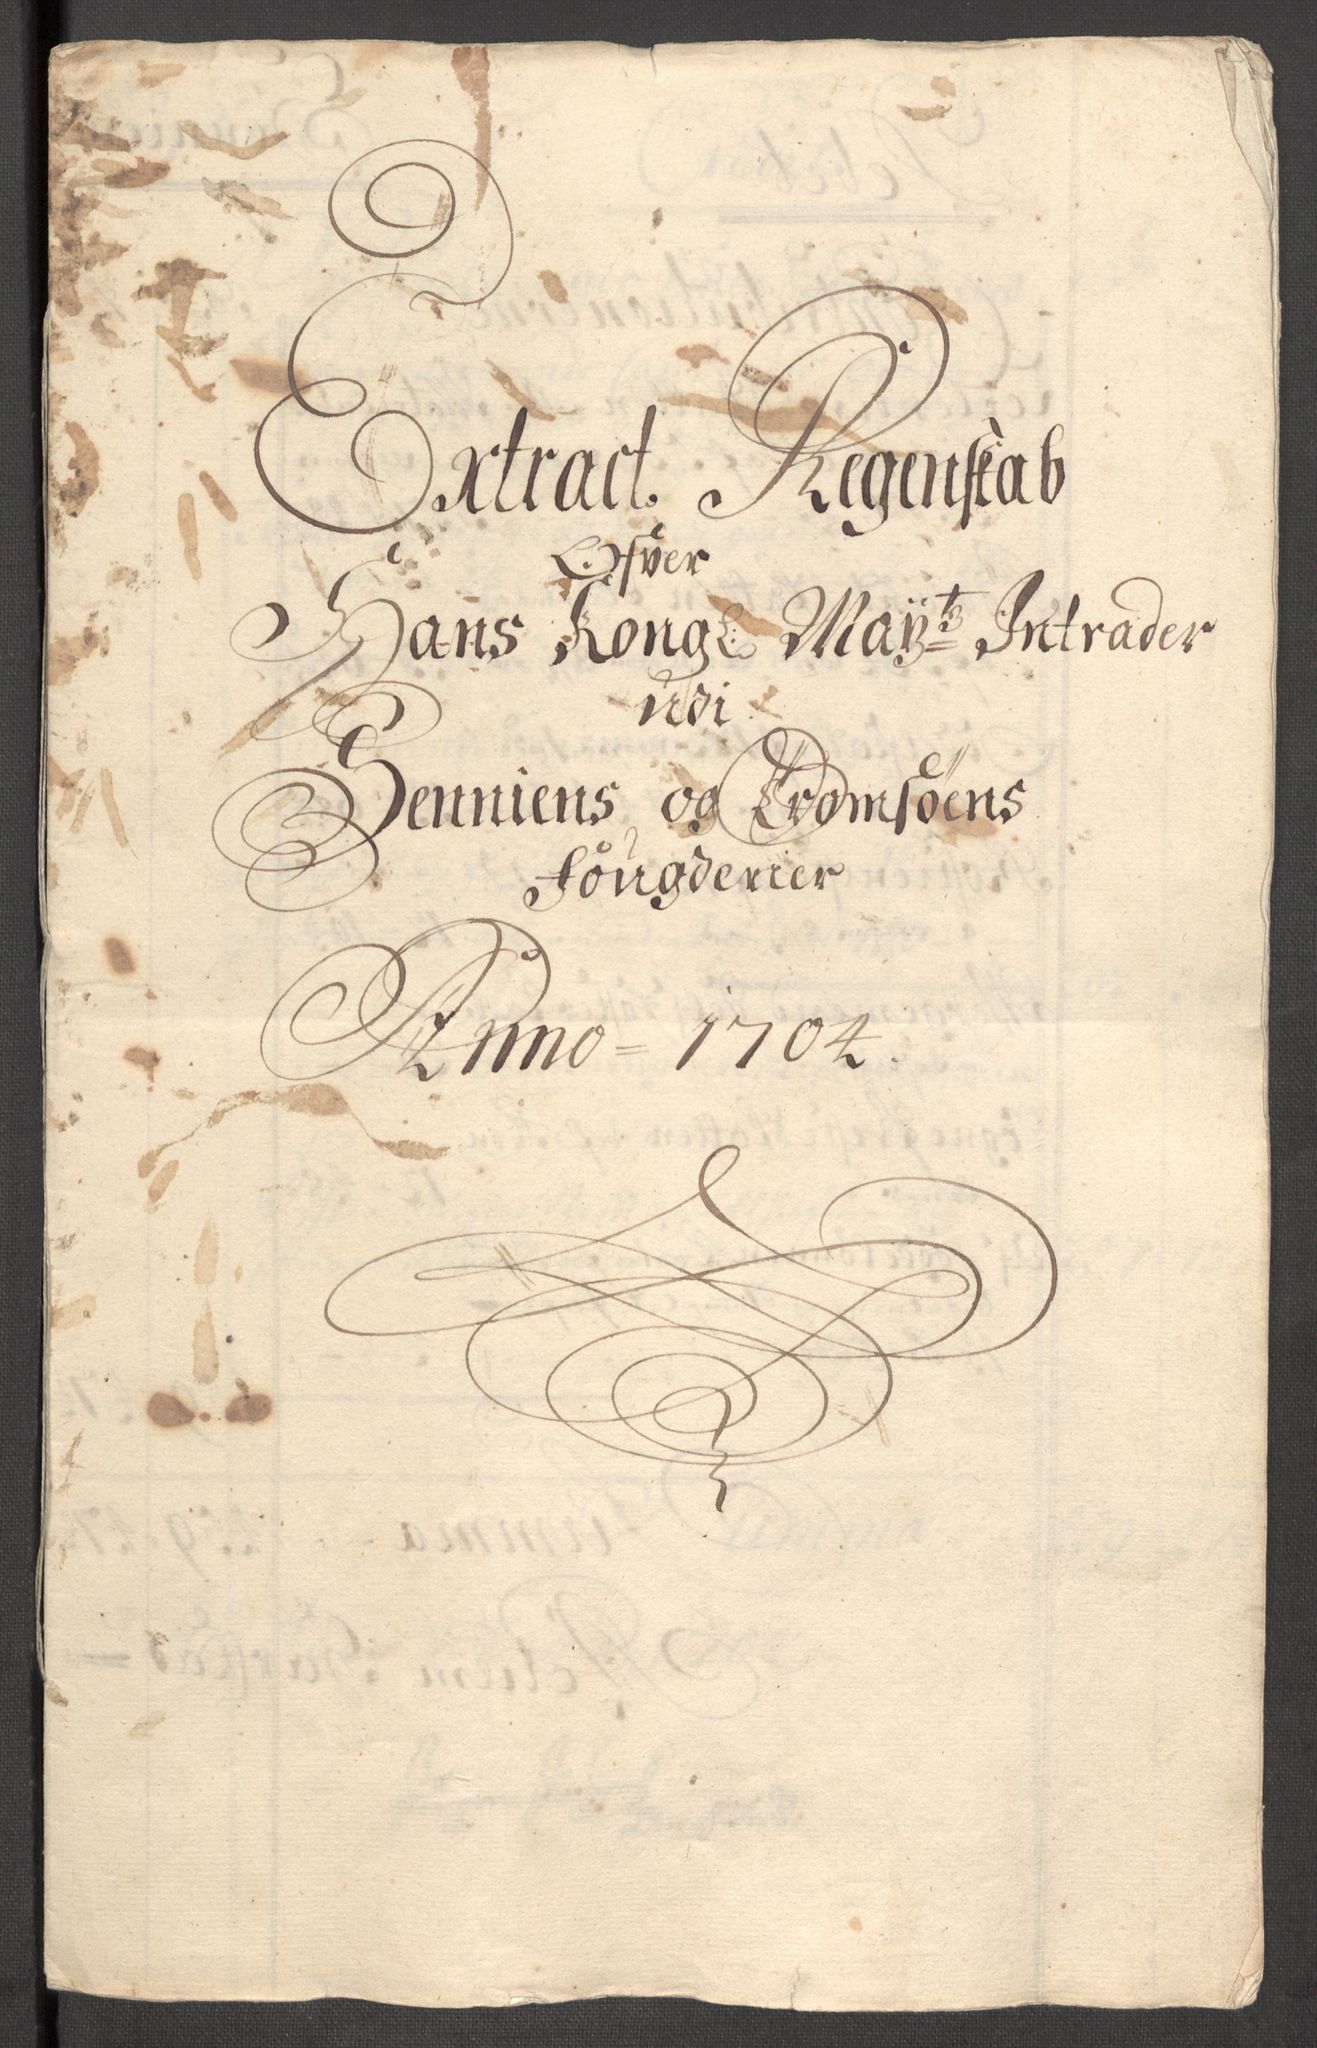 Extract Regenskab
Ofver
Hans Kongl. Maÿts Intrader
udi
Senniens og Tromsöens
Fougderier
Anno = 1704.